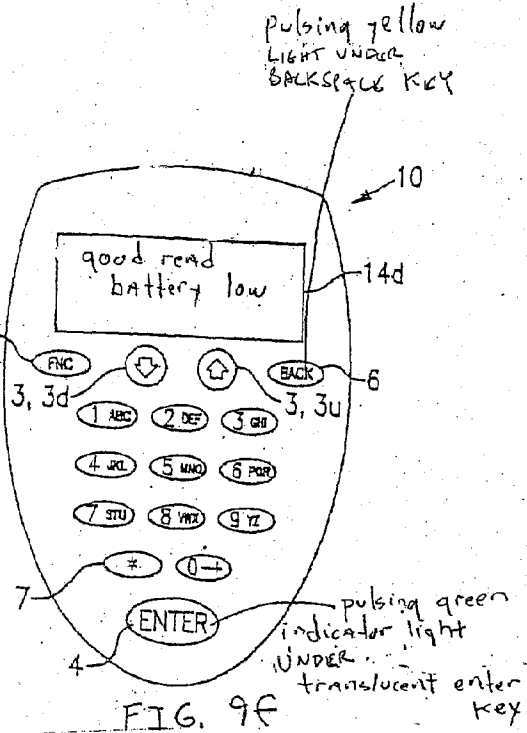 pulsing yellow
LIGHT UNDER
BACKSPACE KEY
10
good read
battery low
14d
FNC
BACK
6
3, 3d
3, 3u
1 ABC 2 DEF 3 GHI
4 JKL 5 MNO 6 PQR
7 STU 8 VWX 9 YZ
* 0
7
ENTER
4
pulsing green
indicator light
UNDER
translucent enter
key
FIG. 9E